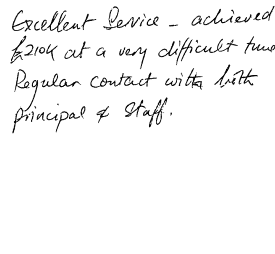 Excellent Service - achieved
£210K at a very difficult time
Regular contact with both
principal & staff.